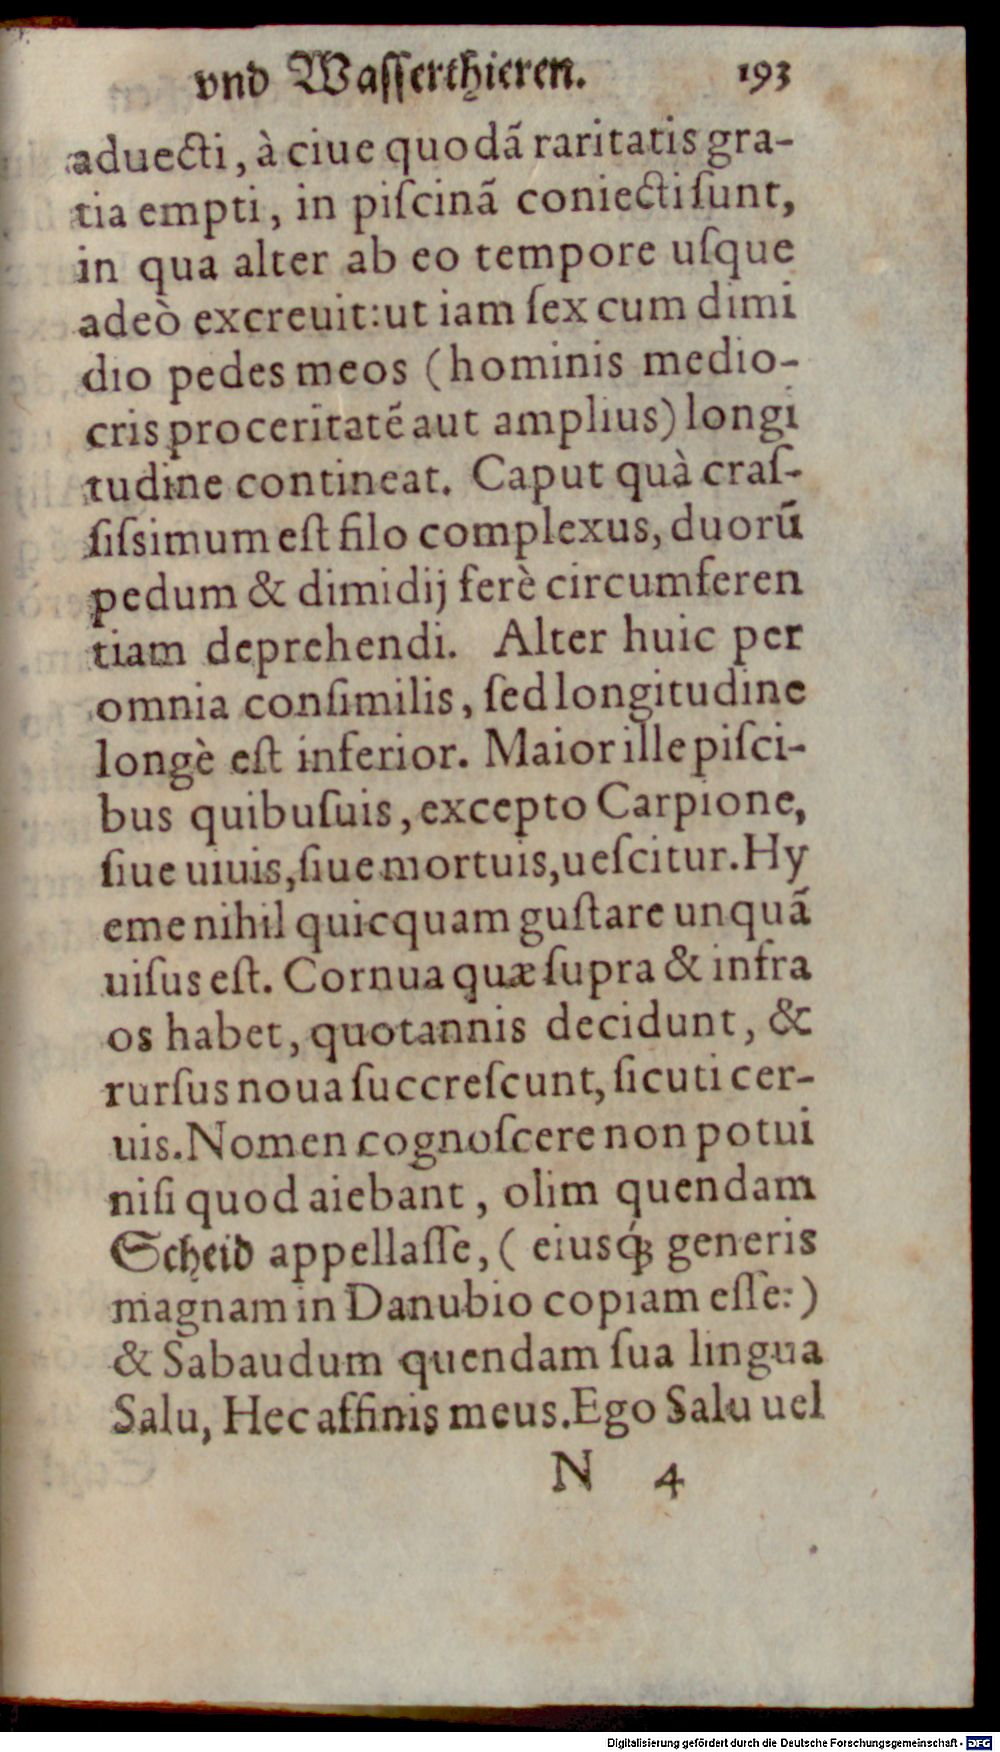 vnd Wasserthieren. 193
aduecti, à ciue quodã raritatis gra-
tia empti, in piſcinã coniecti ſunt,
in qua alter ab eo tempore uſque
adeò excreuit: ut iam ſex cum dimi
dio pedes meos (hominis medio-
cris proceritatẽ aut amplius) longi
tudine contineat. Caput quà craſ-
ſiſsimum eſt filo complexus, duorũ
pedum & dimidij ferè circumferen
tiam deprehendi. Alter huic per
omnia conſimilis, ſed longitudine
longè eſt inferior. Maior ille piſci-
bus quibuſuis, excepto Carpione,
ſiue uiuis, ſiue mortuis, ueſcitur. Hy
eme nihil quicquam guſtare unquã
uiſus eſt. Cornua quæ ſupra & infra
os habet, quotannis decidunt, &
rurſus noua ſuccreſcunt, ſicuti cer-
uis. Nomen cognoſcere non potui
niſi quod aiebant, olim quendam
Scheid appellaſſe, ( eiusq́ꝫ generis
magnam in Danubio copiam eſſe: )
& Sabaudum quendam ſua lingua
Salu, Hec affinis meus. Ego Salu uel
N 4
Digitalisierung gefördert durch die Deutsche Forschungsgemeinschaft - DFG